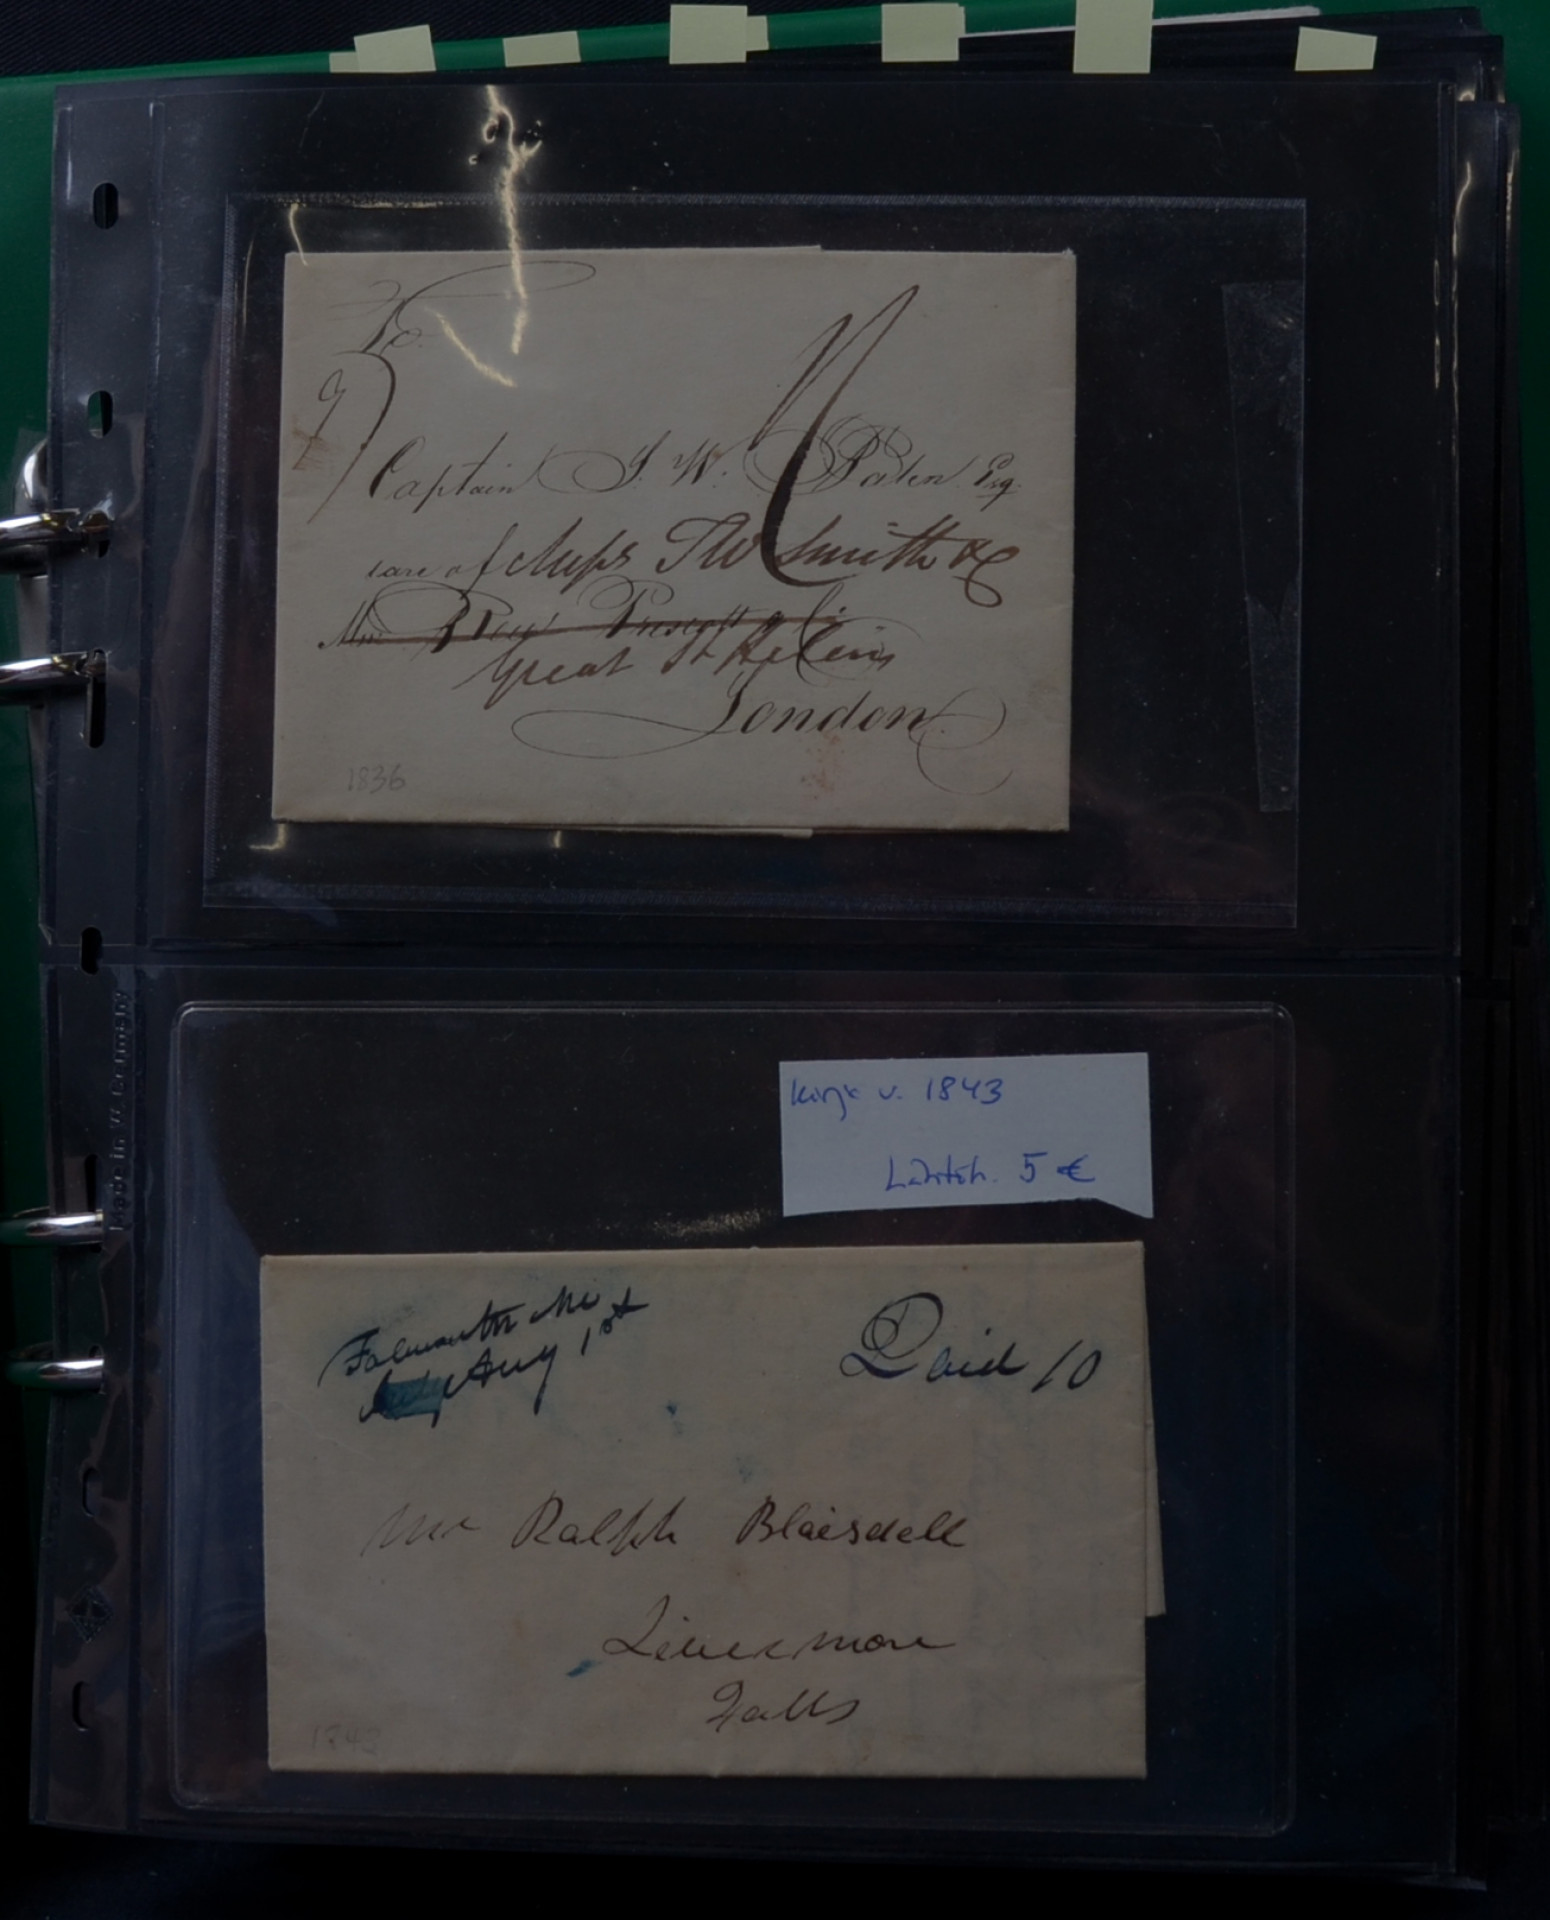 To
Captain J. W. Paten Esq.
care of Mess Tho Smith & Co
Mess Prescott &
Great St Helens
London
1836
Made in W. Germany
kirje v. 1843
5 €
Falmouth Me
Aug 1st
Paid 10
Mr Ralph Blaisdell
Livermore
Falls
1843